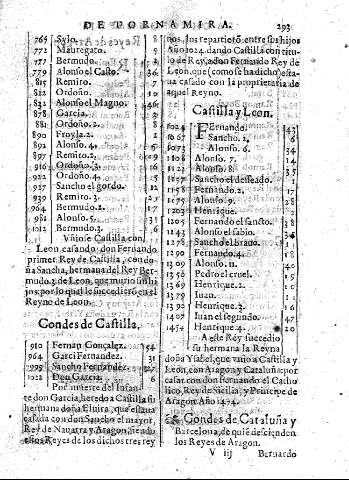 DE TORNAMIRA. 293
765 Sylo.
772 Mauregato.
777 Bermudo.
779 Alonso el Casto. 36
812 Ramiro.
822 Ordoño.
832 Alonso el Magno.
878 Garcia. 3
881 Ordoño. 2. 8
890 Froyla. 2.
892 Alonso. 4. 5
897 Remiro. 2. 19
916 Ordoño. 3.
921 Ordoño. 4. 5
927 Sancho el gordo. 12
939 Remiro. 3. 27
964 Bermudo. 2. 17
981 Alonso. 5. 31
1012 Bermudo. 3. 6
Uniose Castilla con
Leon casando don Fernando
primer Rey de Castilla, con do
ña Sancha, hermana del Rey Ber
mudo. 3. de Leon, que murio sin hi
jos por lo qual le succedio en el
Reyno de Leon.
Condes de Castilla.
910 Fernan Gonçalez. 54
964 Garci Fernandez. 31
995 Sancho Fernandez.
1022 Don Garcia. 6
Por muerte del Infan-
te don Garcia, heredo a Castilla su
hermana doña Elvira, que estaua
casada con don Sancho el mayor,
Rey de Nauarra y Aragon. siendo
ellos Reyes de los dichos tres rey
nos, los repartierō entre sus hijos
Año 1024. dando Castilla con titu
lo de Rey, a don Fernando Rey de
Leon, que (como se ha dicho) esta
ua casado con la proprietaria de
aquel Reyno.
Castilla y Leon.
1024 Fernando. 43
1067 Sancho. 2, 6
1073 Alonso. 6. 34
Alonso. 7.
Alonso. 8.
Sancho el deseado.
1158 Fernando. 2.
Alonso. 9.
1201 Henrique.
1205 Fernando el sancto.
Alonso el sabio.
Sancho el Brauo.
1290 Fernando. 4.
1309 Alonso. 11.
1356 Pedro el cruel.
1369 Henrique. 2. 10
1379 Iuan. 11
Henrique. 3.
1407 Iuan el segundo. 47
1454 Henrique 4. 20
A este Rey succedio
su hermana la Reyna
doña Ysabel, que vnio a Castilla y
Leon, con Aragon y Cataluña por
casar con don Fernando el Catho
lico, Rey de Sicilia, y Principe de
Aragon Año 1474.
Condes de Cataluña y
Barcelona, de quiē descienden
los Reyes de Aragon.
V iij Bernardo